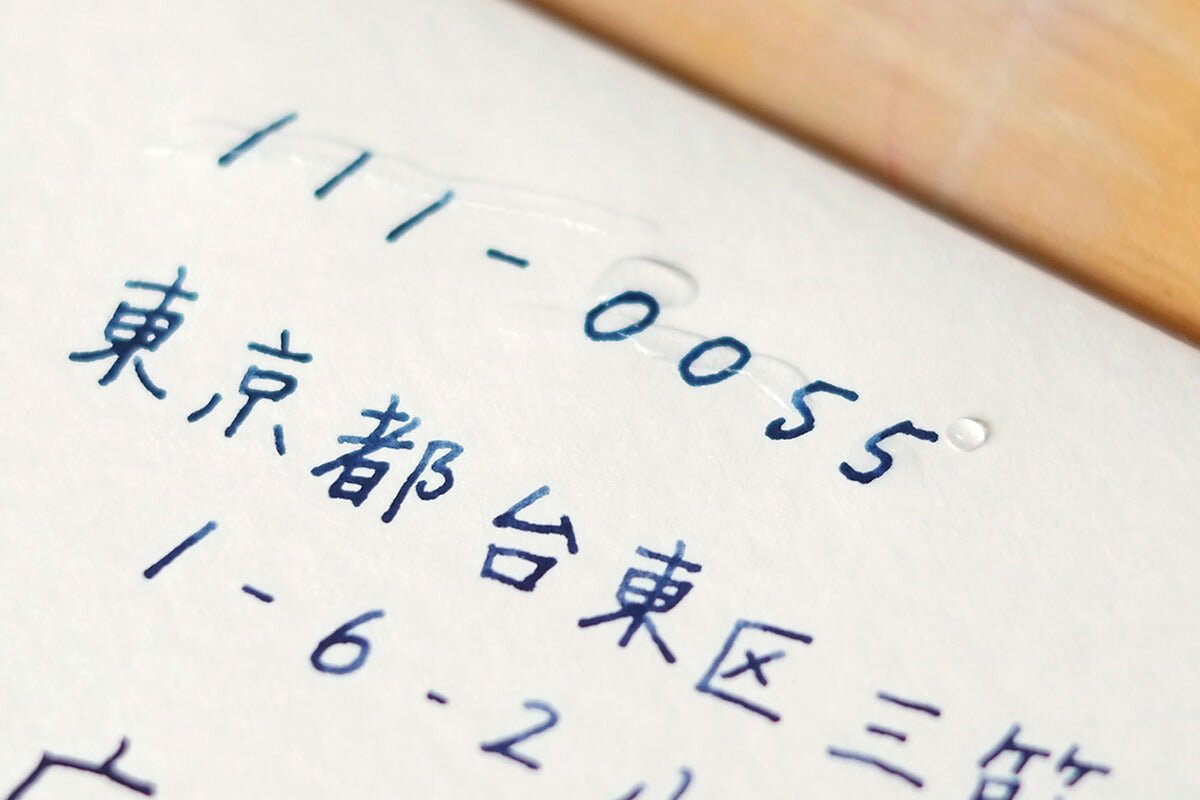 111-0055
東京都台東区三
1-6-2